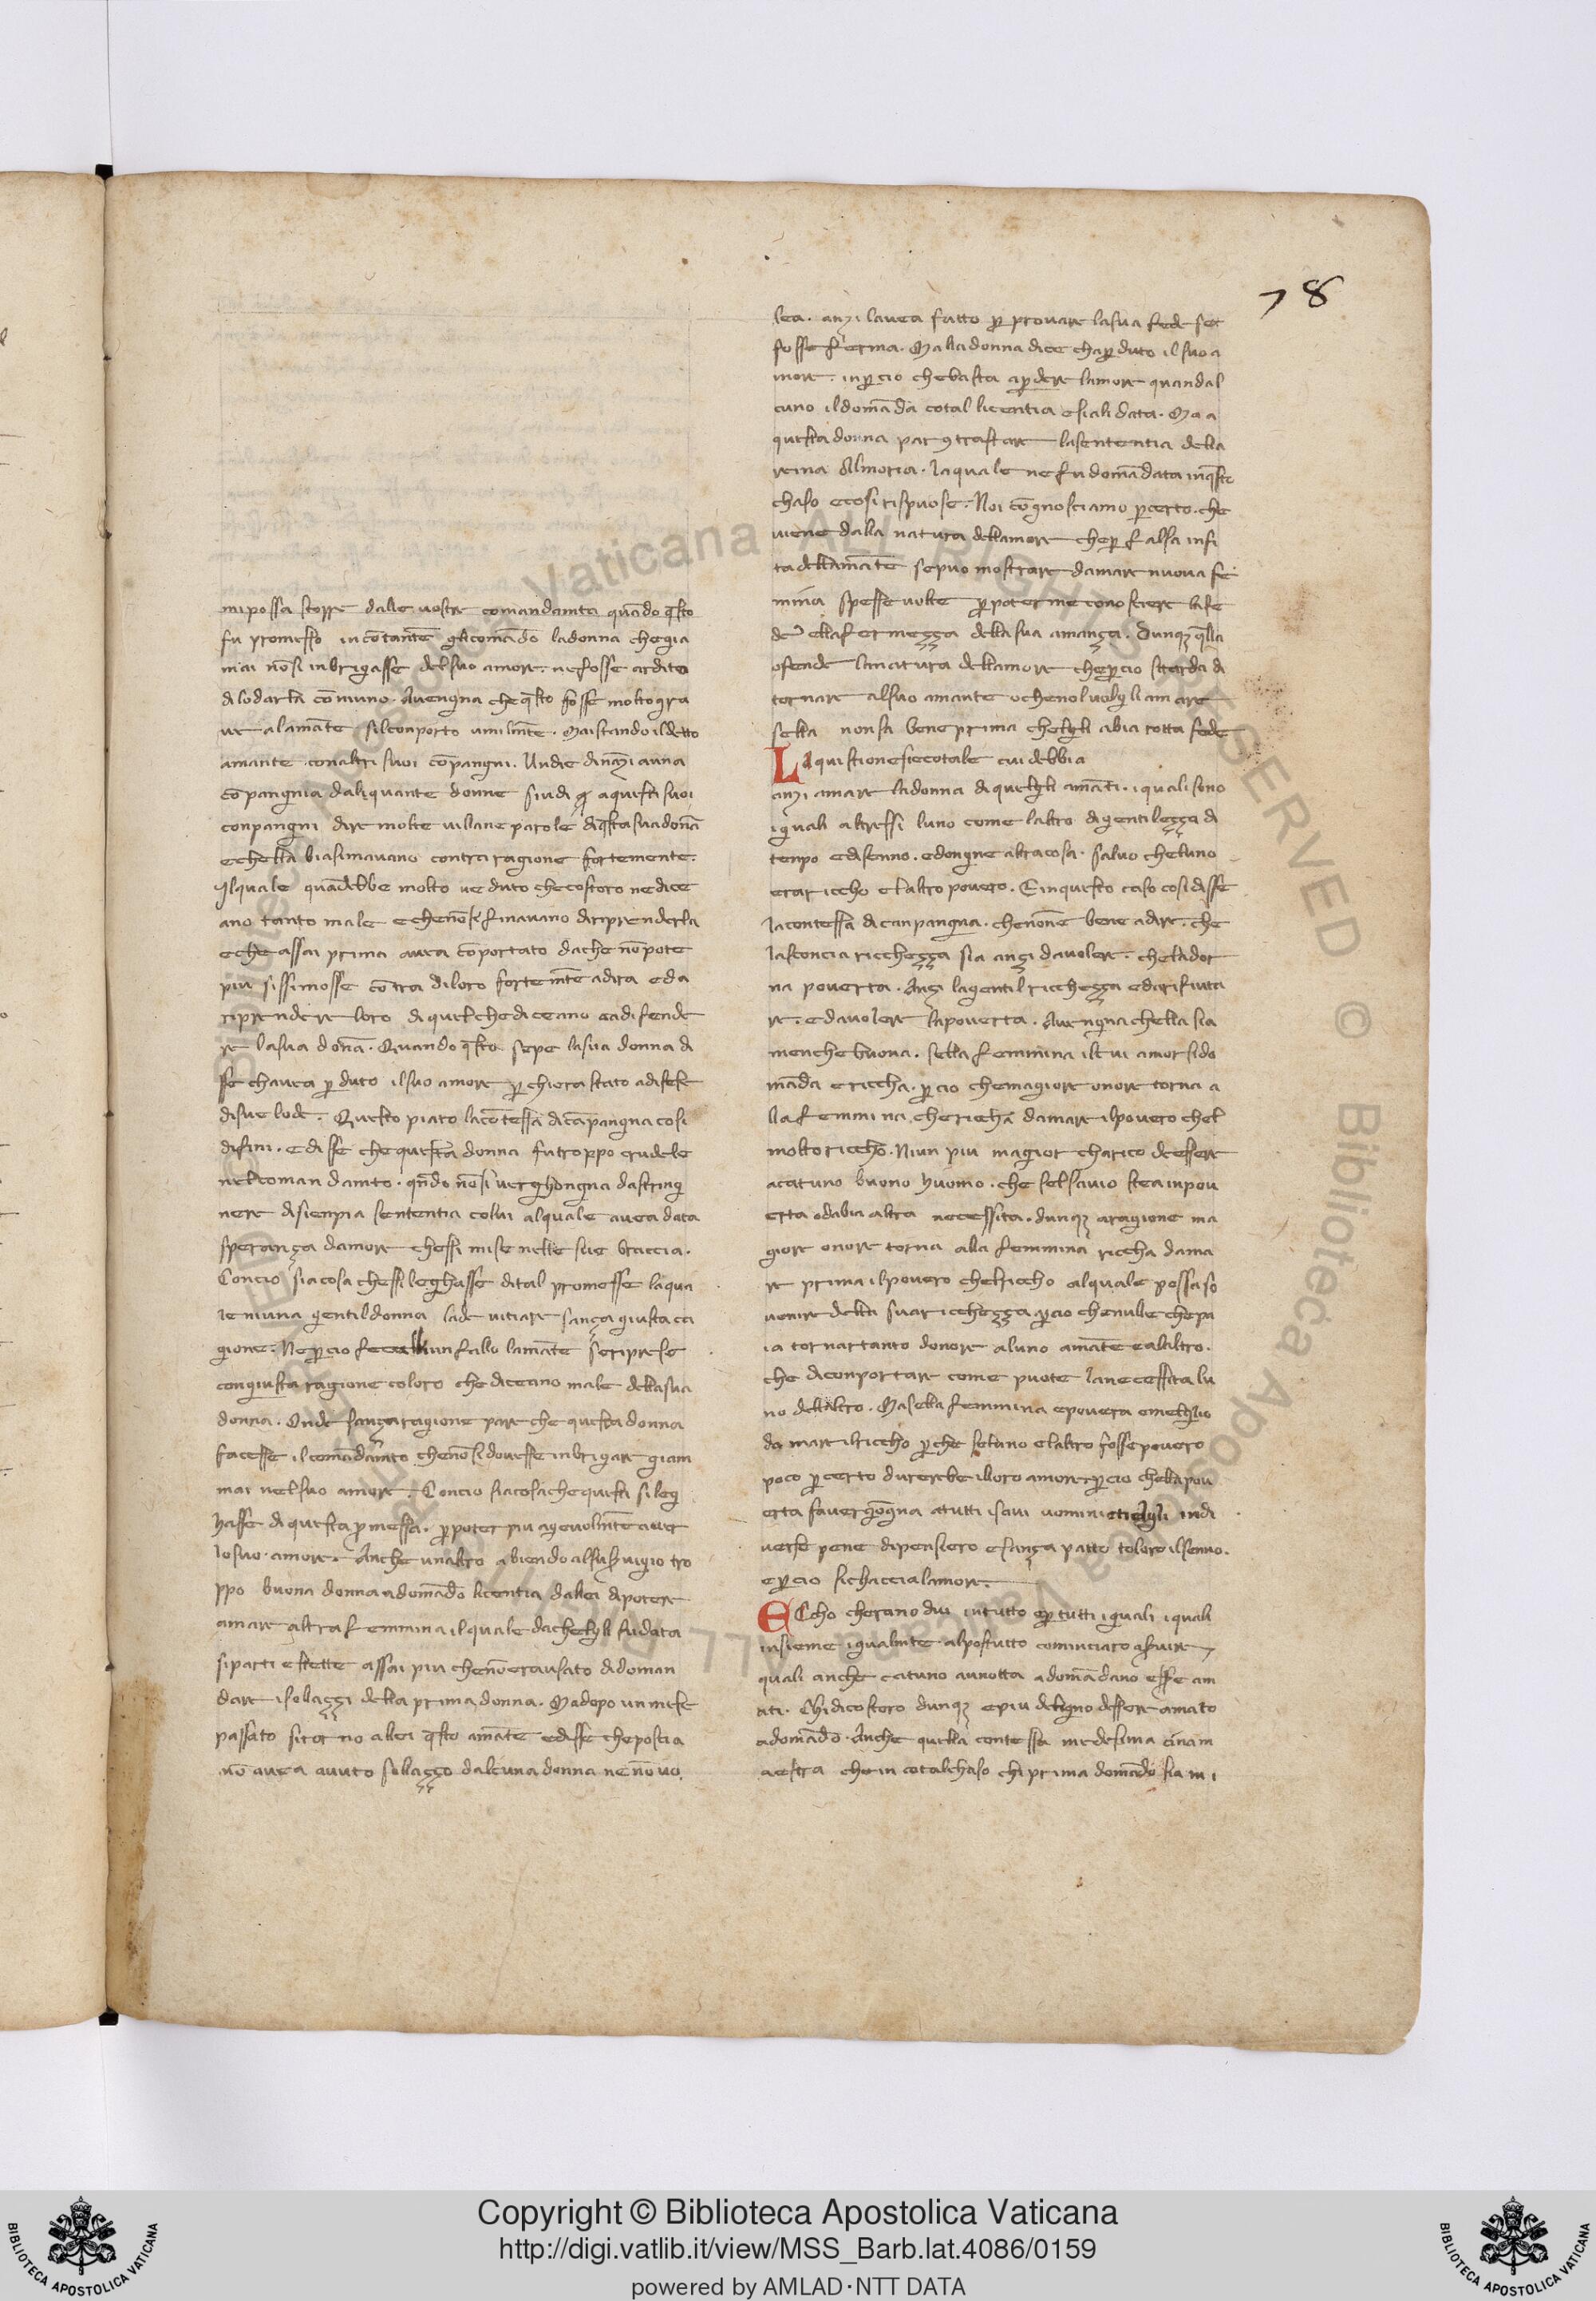 78
mi possa storre dalle vostre comandamta quãdo q̃sto
fu promesso incõtanente gli comãdo la donna che gia
mai nõsi inbrigasse del suo amore. ne fosse ardito
di lodarla cõmuno. Avengna che q̃sto fosse molto gra
ve alamãte silconporto umilmte. Ma istando il detto
amante con altri suoi cõpangni. Un die dinãzi auna
cõpangnia daliquante donne si udi aquesti suoi
conpangni dire molte villane parole diq̃sta sua donã
e chella biasimavano contra ragione fortemente.
Ilquale quãdebbe molto veduto che costoro ne dice
ano tanto male e chenõsi finavano di rip̃nderla
e che assai prima avea cõportato da che nõ pote
piu sissimosse cõtra di loro fortemte adira ed a
riprendere loro di quel che diceano e a difende
re la sua donã. Quando q̃sto sepe la sua donna di
sse chavea p̱duto il suo amore p̱chiera stato a difese
di sue lode. Questo piato la cõtessa di cãpangna cosi
difini. e disse che questa donna fu troppo crudele
nel comandamto. qñdo nõsi verghongna dastring
nere disienpia sententia colui alquale avea data
sperança damore chessi mise nelle sue braccia.
Concio sia cosa chessi leghasse di tal promesse laqua
le niuna gentil donna lade vitiare sança giusta ca
gione. Nep̱cio fece niun fallo lamãte se riprese
con giusta ragione coloro che diceano male della sua
donna. Onde sança ragione pare che questa donna
facesse il comãdamto chenõsi dovesse inbrigar giam
mai nel suo amore. Concio sia cosa che questi si leg
hasse di questa p̱messa. p̱ poter piu agevolmte aver
lo suo amore. Anche unaltro abiendo al suo servigio tro
ppo buona donna adomãdo licentia da llei di potere
amare altra femmina ilquale da chelgli fu data
si parti e stette assai piu chenõ era usato di doman
dare i sollaççi della prima donna. Ma dopo un mese
passato si torno allei q̃sto amãte e disse che poscia
nõ avea avuto sollaçço dalcuna donna ne nõ vo
lea. anzi lavea fatto p̱ provare la sua fede sett
fosse ferma. Ma lla donna dice cha p̱duto il suo a
more. inp̱cio che basta ap̱dere lamore quandal
cuno il domãda cotal licentia e siali data. Ma a
questa donna par 9trastare la sententia della
reina Alinoria. laquale ne fu domãdata inq̃sto
chaso e cosi rispuose. Noi cõgnosciamo p̱certo. che
viene dalla natura dellamore che p̱ falsa infi
ta dellamãte se puo mostrare damare nuova fe
mina spesse volte p̱ poterme conosciere la fe
de e lla fermeçça della sua amança. Dunqz q̃lla
ofende la natura dellamore che p̱cio starda di
tornare al suo amante o che nol vuolgli amare
sella non sa bene prima chelgli abia rotta fede
La quistione sie cotale cui debbia
anzi amare la donna di quelgli amãti. i quali sono
iguali altressi luno come laltro di gentileçça di
tenpo e di senno. ed ongne altra cosa. salvo che luno
era riccho e laltro povero. E in questo caso cosi disse
la contessa di canpangna. che none bene a dire. che
la sconcia riccheçça sia ançi da volere. che la dor
na poverta. Ançi la gentil riccheçça e di rifiuta
re. e da volere la poverta. Avengna che lla sia
menche buona. sella femmina il cui amor si do
mãda e riccha. p̱cio che magiore onore torna a
lla femmina che riccha damare il povero chel
molto riccho. Niun piu magior charico de essere
acatuno buono huomo. che sel savio stea in pov
erta od abia altra necessita. dunqz aragione ma
giore onore torna alla femmina riccha dama
re prima il povero chel riccho alquale possa so
venire della sua riccheçça p̱cio che nulle che pa
ia tornar tanto donore aluno amãte e alaltro.
che di conportare come puote la necessita lu
no dellaltro. Ma sella femmina e povera e melglio
da mare il riccho p̱che seluno e laltro fosse povero
poco p̱certo durerebe illoro amore p̱cio che lla pov
erta fa vergõgna a tutti i savi uomini in di
verse pene di pensiero e sança patto to loro il senno.
e p̱cio si chaccia lamore.
ECcho cherano dui in tutto e p̱ tutti iguali i quali
insieme igualmte alpostutto cominciaro a servire
quali anche catuno aunotta adomãdano essere am
ati. Chi di costoro dunqz e piu delgno dessere amato
adomãdo. Anche quella contessa medesima cinam
aestra che in cotal chaso chi prima domãdo sia in i